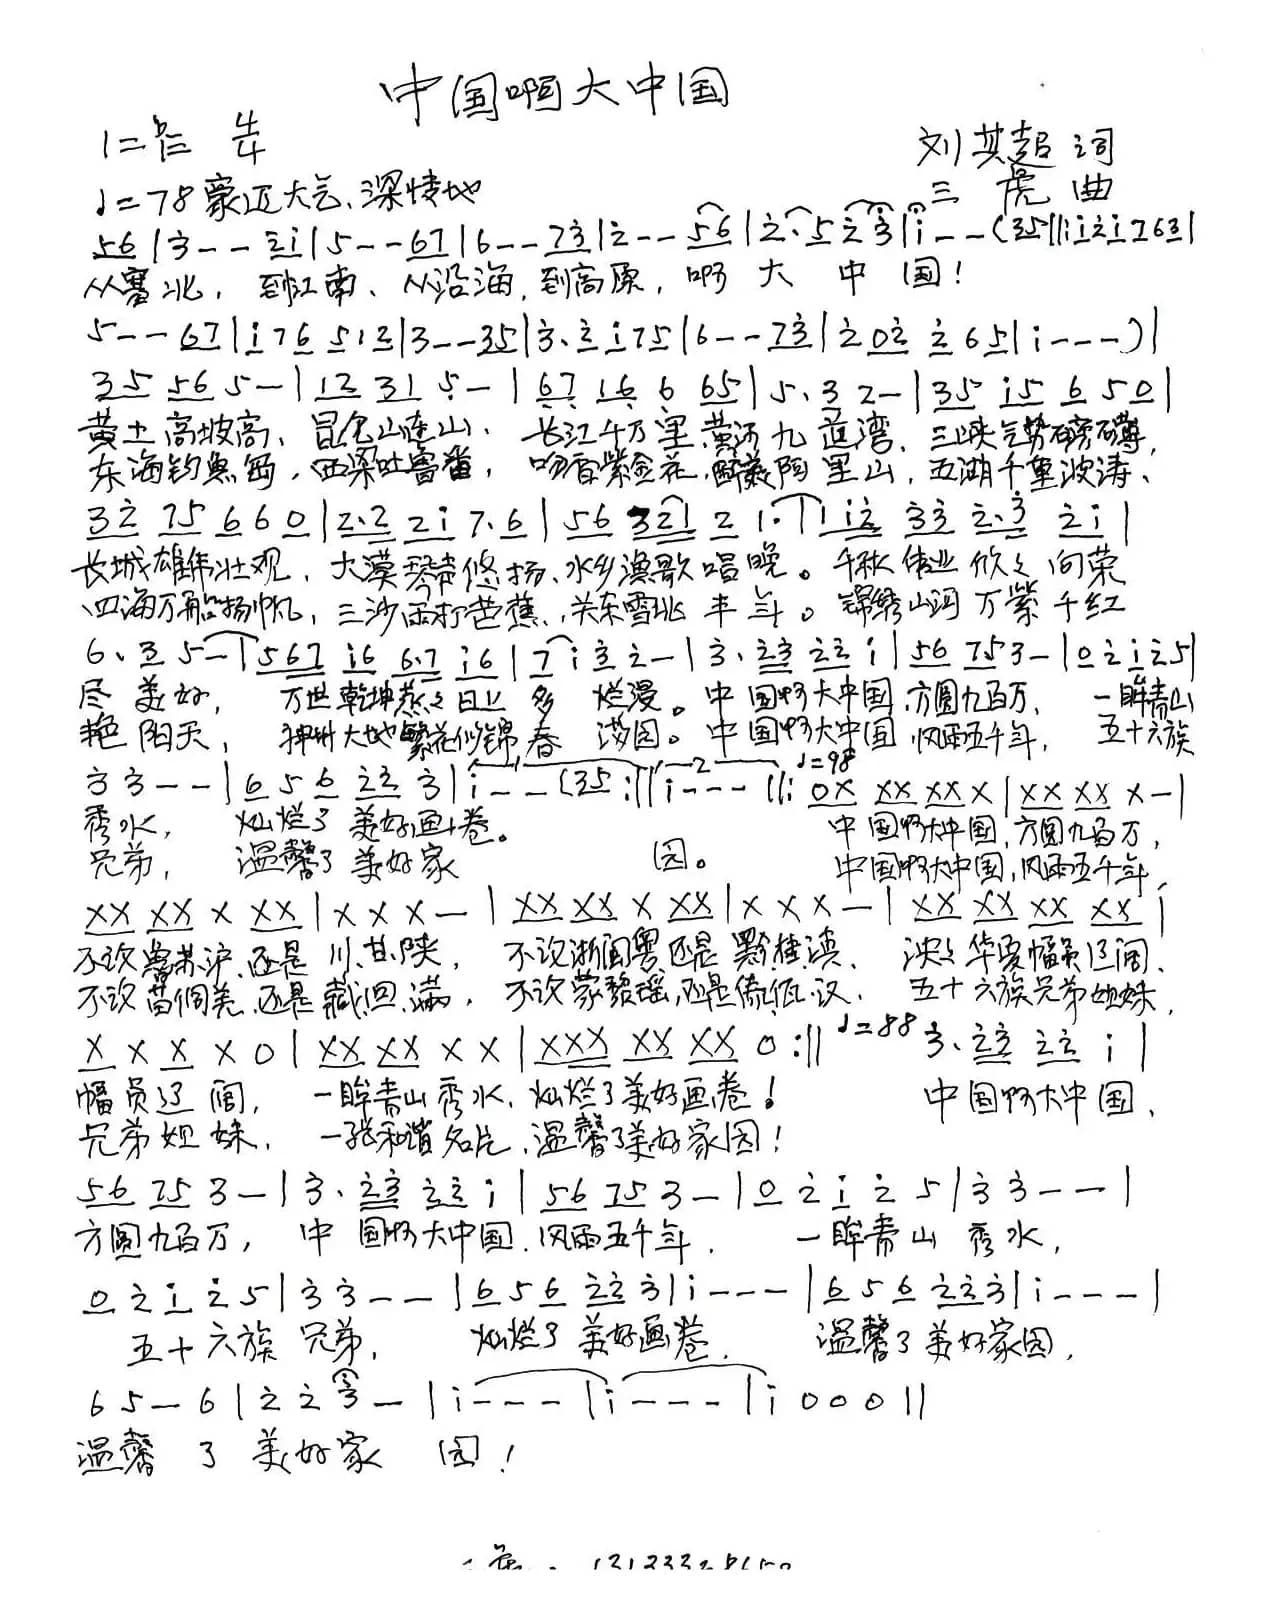 中国啊大中国
1=♭E 4/4
刘其超 词
♩=78 豪迈大气、深情地
三虎 曲
56|3--2i|5--67|6--73|2--56|2·523|i--(35||ii2i763|
从塞北，到江南、从沿海，到高原，啊大中国！
5--67|i76512|3--35|3·2i75|6--73|202265|i---)|
35565-|12315-|6716665|5·32-|35i5650|
黄土高坡高、昆仑山连山、长江千万里黄河九道湾、三峡气势磅礴，
东海钓鱼岛，西梁吐鲁番，吻香紫金花，醉美阿里山，五湖千里波涛、
3275660|2·22i7·6|5632121·|1i2332·32i|
长城雄伟壮观，大漠琴声悠扬、水乡渔歌唱晚。千秋伟业欣欣向荣
四海万船扬帆，三沙雨打芭蕉，关东雪兆丰年。锦绣山河万紫千红
6·35-|567i66·7i6|7i32-|3·2322i|56753-|02i25|
尽美好，万世乾坤蒸蒸日上多烂漫。中国啊大中国，方圆九百万，一眸青山
艳阳天，神州大地繁花似锦春满园。中国啊大中国，风雨五千年，五十六族
33--|656223|i--(35:||i---||: ♩=98 0XXXXXX|XXXXX-|
秀水，灿烂了美好画卷。中国啊大中国，方圆九百万，
兄弟，温馨了美好家园。中国啊大中国，风雨五千年，
XXXXXXX|XXX-|XXXXXXX|XXX-|XXXXXXXX|
不说鲁苏沪、还是川甘陕，不说浙闽粤还是黔桂滇、泱泱华夏幅员辽阔、
不说苗侗羌、还是藏回满，不说蒙黎瑶，还是傣佤汉、五十六族兄弟姐妹，
XXXX0|XXXXXX|XXXXXXX0:|| ♩=88 3·2322i|
幅员辽阔，一眸青山秀水，灿烂了美好画卷！中国啊大中国，
兄弟姐妹，一张和谐名片，温馨了美好家园！
56753-|3·2322i|56753-|02i25|33--|
方圆九百万，中国啊大中国，风雨五千年，一眸青山秀水，
02i25|33--|656223|i---|656223|i---|
五十六族兄弟，灿烂了美好画卷，温馨了美好家园，
65-6|223-|i---|i---|i000||
温馨了美好家园！